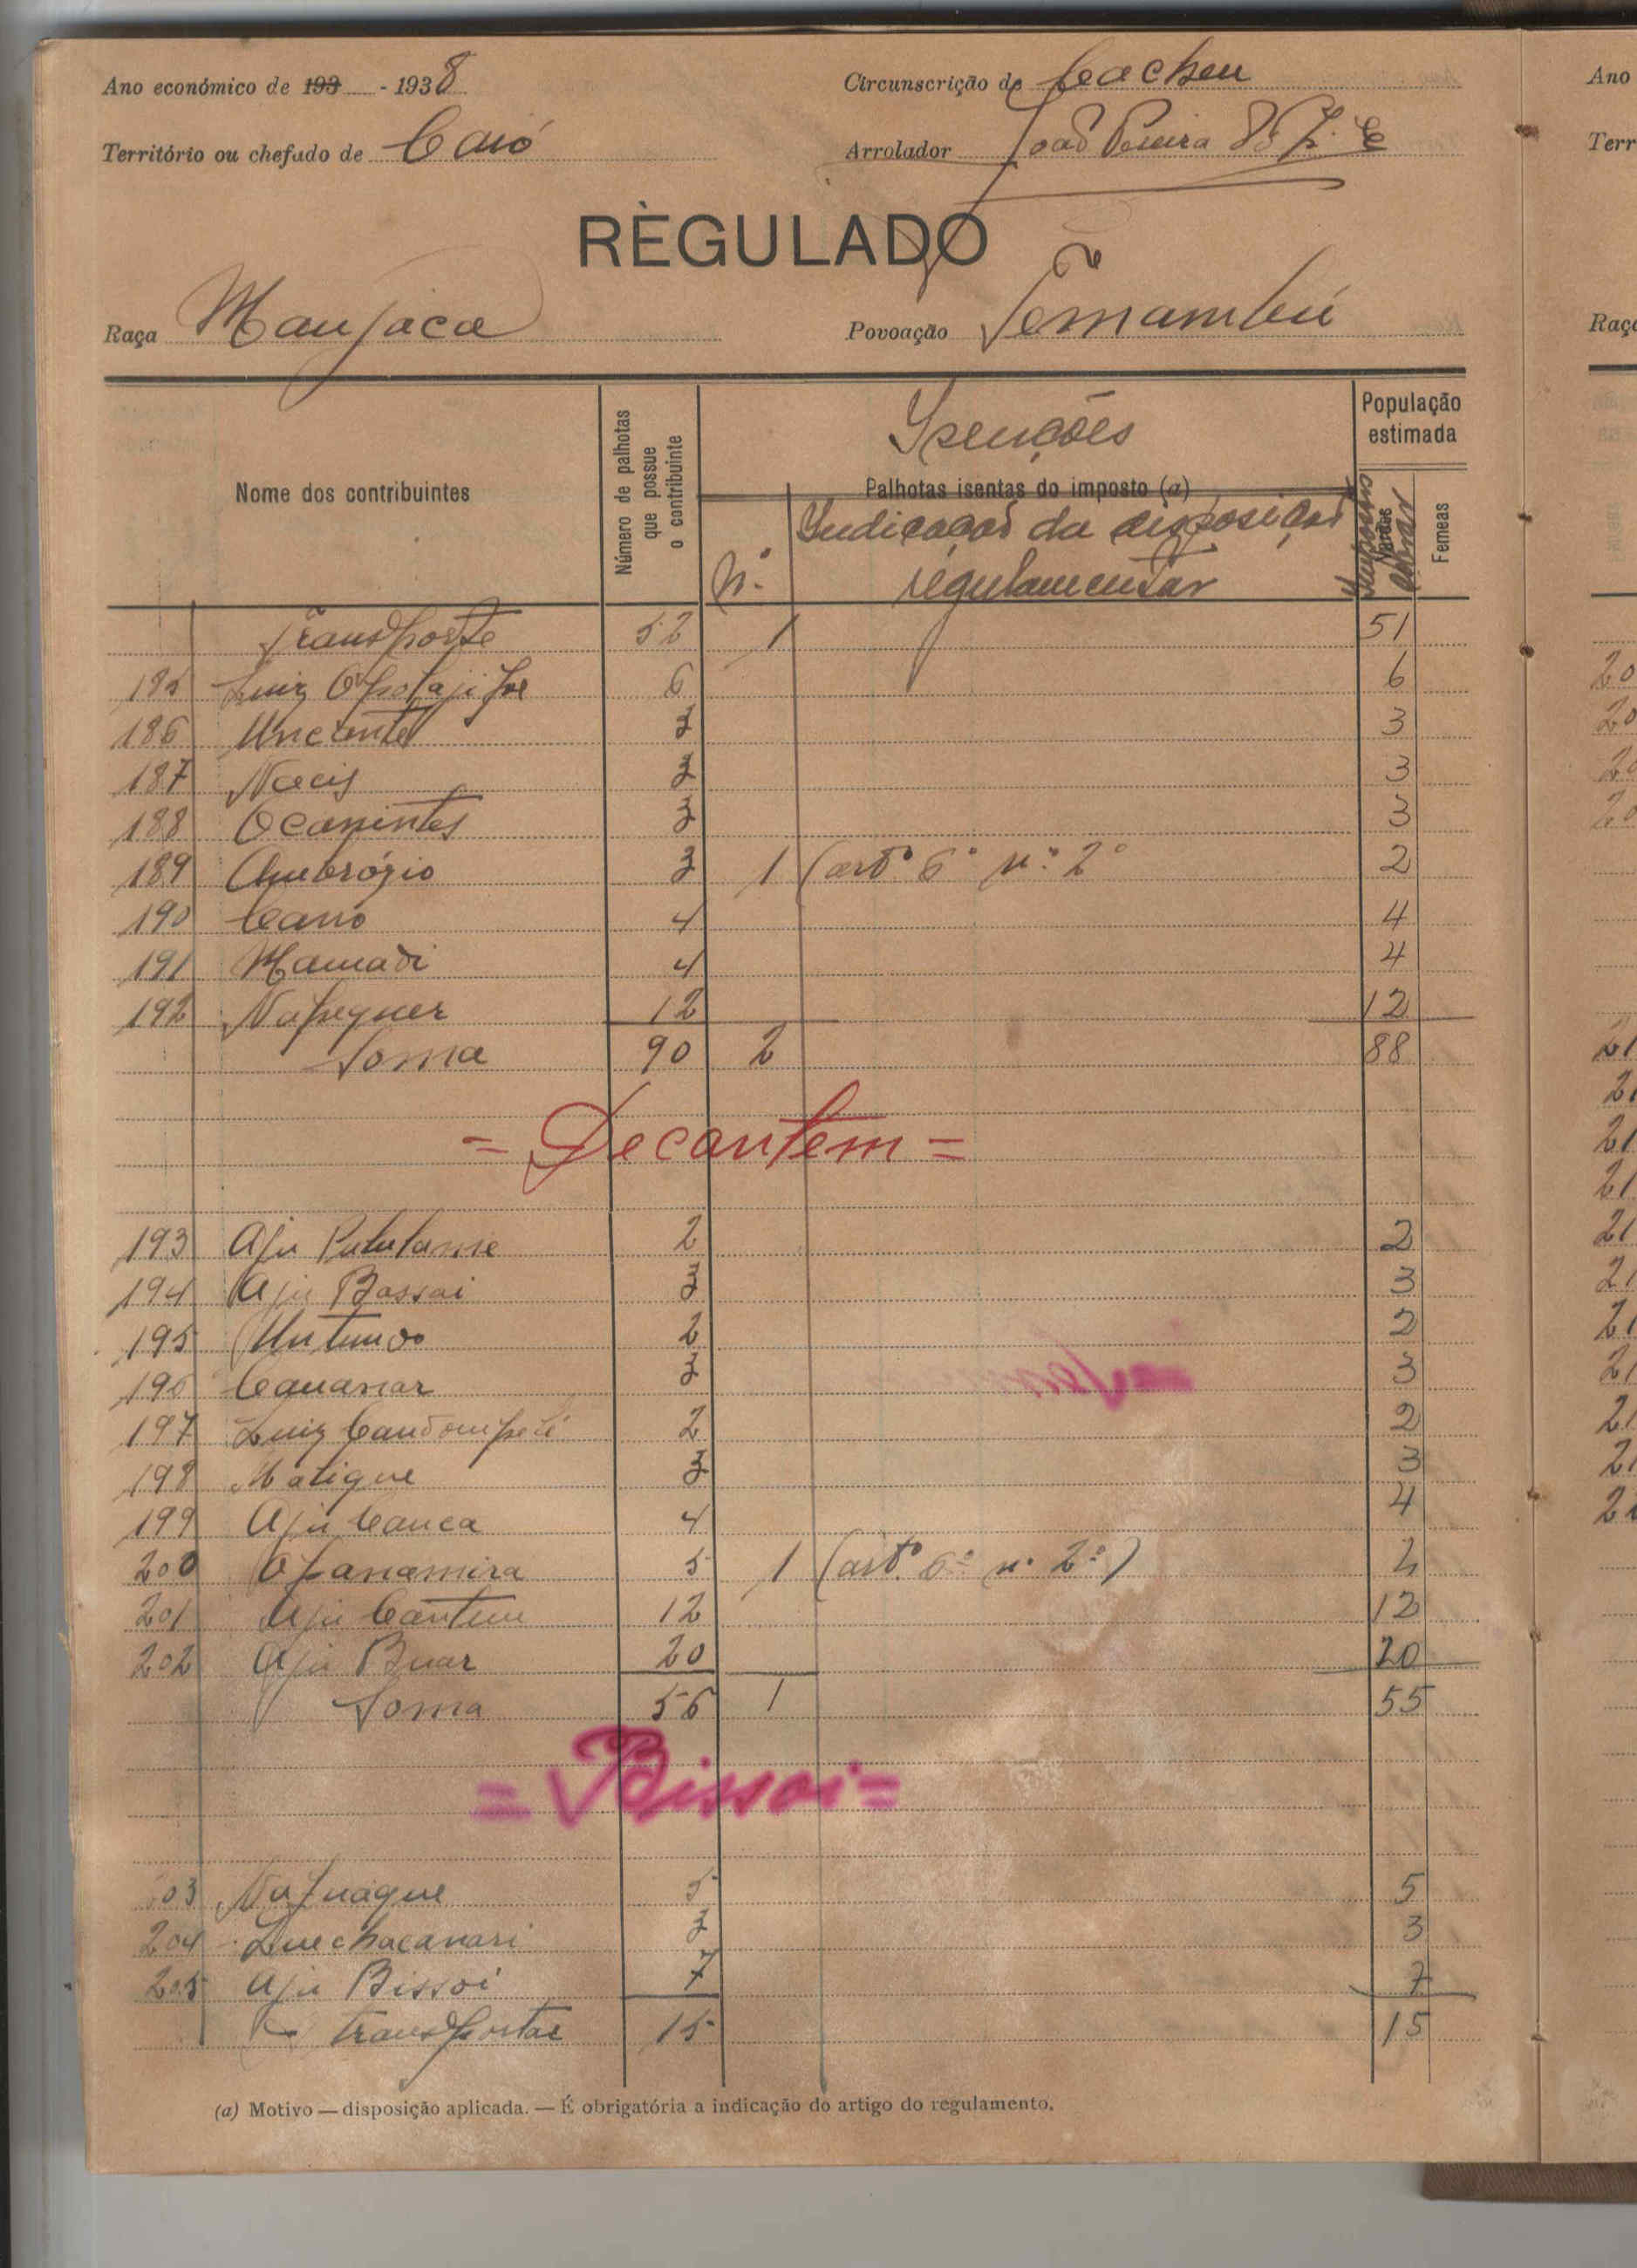 Ano económico de 193 - 1938
Circunscrição de Cacheu
Território ou chefado de Caió
Arrolador João Pereira
REGULADO
Raça Manjaca
Povoação
Nome dos contribuintes
Número de palhotas que possue o contribuinte
Isenções
Palhotas isentas do imposto (a)
N.º
Indicação da disposição
regulamentar
População estimada
Varões
Femeas
Transporte 52 1 51
185 Luiz 6 6
186 3 3
187 Nacis 3 3
188 Ocanintes 3 3
189 Ambrózio 3 1 (art.º 6.º n.º 2.º 2
190 Caió 4 4
191 Mamadi 4 4
192 Napequer 12 12
Soma 90 2 88
= Decantem =
193 Aju 2 2
194 Aju Bassai 3 3
195 Untundo 2 2
196 Cauanar 3 3
197 Luiz 2 2
198 Matique 3 3
199 Aju Canca 4 4
200 Ofanamira 5 1 (art.º 6.º n.º 2.º) 4
201 Aju Cantum 12 12
202 Aju Buar 20 20
Soma 56 1 55
= Bissoi =
203 Nafuague 5 5
204 Quechacanari 3 3
205 Aju Bissoi 7 7
Transportar 15 15
(a) Motivo — disposição aplicada. — É obrigatória a indicação do artigo do regulamento.